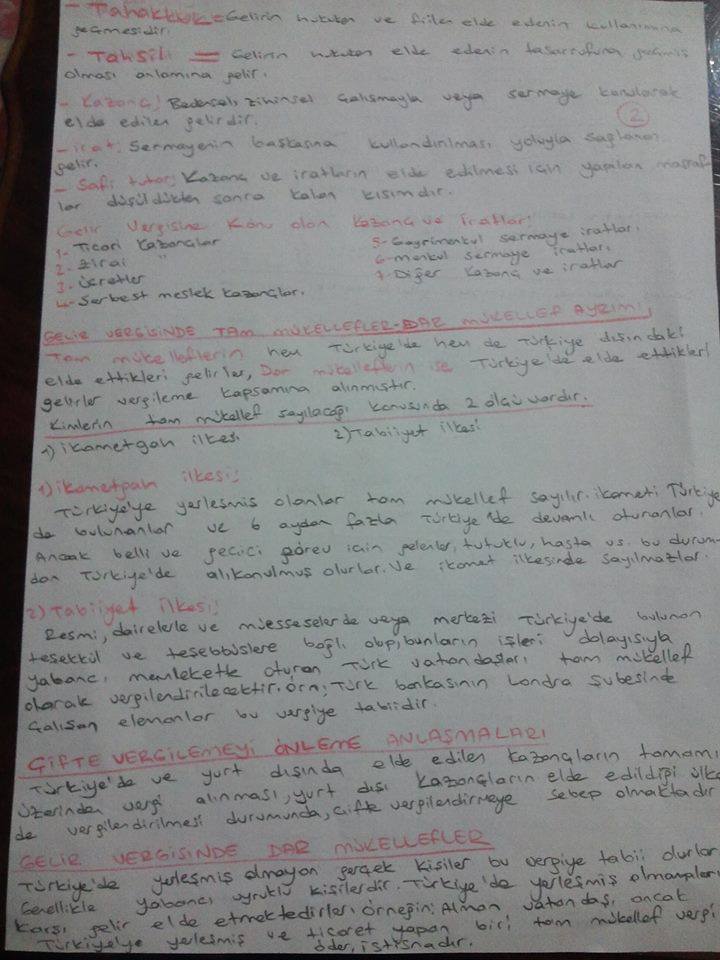 - Tahakkuk = Gelirin hukuken ve fiilen elde edenin kullanımına
geçmesidir.
- Tahsil = Gelirin hukuken elde edenin tasarrufuna geçmiş
olması anlamına gelir.
- Kazanç: Bedensel, zihinsel çalışmayla veya sermaye konularak
elde edilen gelirdir.
2
- irat: Sermayenin başkasına kullandırılması yoluyla sağlanan
gelir.
- Safi tutar: Kazanç ve iratların elde edilmesi için yapılan masraf
lar düşüldükten sonra kalan kısımdır.
Gelir Vergisine Konu olan Kazanç ve İratlar:
1- Ticari Kazançlar
2- Zirai "
3- Ücretler
4- Serbest meslek kazançlar.
5- Gayrimenkul sermaye iratlar.
6- menkul sermaye iratları
7- Diğer kazanç ve iratlar
GELİR VERGİSİNDE TAM MÜKELLEFLER-DAR MÜKELLEF AYRIMI:
Tam mükelleflerin hem Türkiye'de hem de Türkiye dışındaki
elde ettikleri gelirler, Dar mükelleflerin ise Türkiye'de elde ettikleri
gelirler vergileme kapsamına alınmıştır.
Kimlerin tam mükellef sayılacağı konusunda 2 ölçü vardır.
1) ikametgah ilkesi
2) Tabiiyet ilkesi
1) ikametgah ilkesi:
Türkiye'ye yerleşmiş olanlar tam mükellef sayılır. ikameti Türkiye
de bulunanlar ve 6 aydan fazla Türkiye'de devamlı oturanlar.
Ancak belli ve geçici görev için gelenler, tutuklu, hasta vs. bu durum
dan Türkiye'de alıkonulmuş olurlar. Ve ikamet ilkesinde sayılmazlar.
2) Tabiiyet ilkesi:
Resmi, dairelerle ve müesseselerde veya merkezi Türkiye'de bulunan
teşekkül ve teşebbüslere bağlı olup, bunların işleri dolayısıyla
yabancı memlekette oturan Türk vatandaşları tam mükellef
olarak vergilendirilecektir. örn; Türk bankasının Londra şubesinde
çalışan elemanlar bu vergiye tabiidir.
ÇİFTE VERGİLEMEYİ ÖNLEME ANLAŞMALARI
Türkiye'de ve yurt dışında elde edilen kazançların tamamı
üzerinden vergi alınması, yurt dışı kazançların elde edildiği ülke
de vergilendirilmesi durumunda, çifte vergilendirmeye sebep olmaktadır
GELİR VERGİSİNDE DAR MÜKELLEFLER
Türkiye'de yerleşmiş olmayan gerçek kişiler bu vergiye tabii olurlar
Genellikle yabancı uyruklu kişilerdir. Türkiye'de yerleşmiş olmamaları
karşı gelir elde etmektedirler. örneğin; Alman vatandaşı ancak
Türkiye'ye yerleşmiş ve ticaret yapan biri tam mükellef vergi
öder, istisnadır.